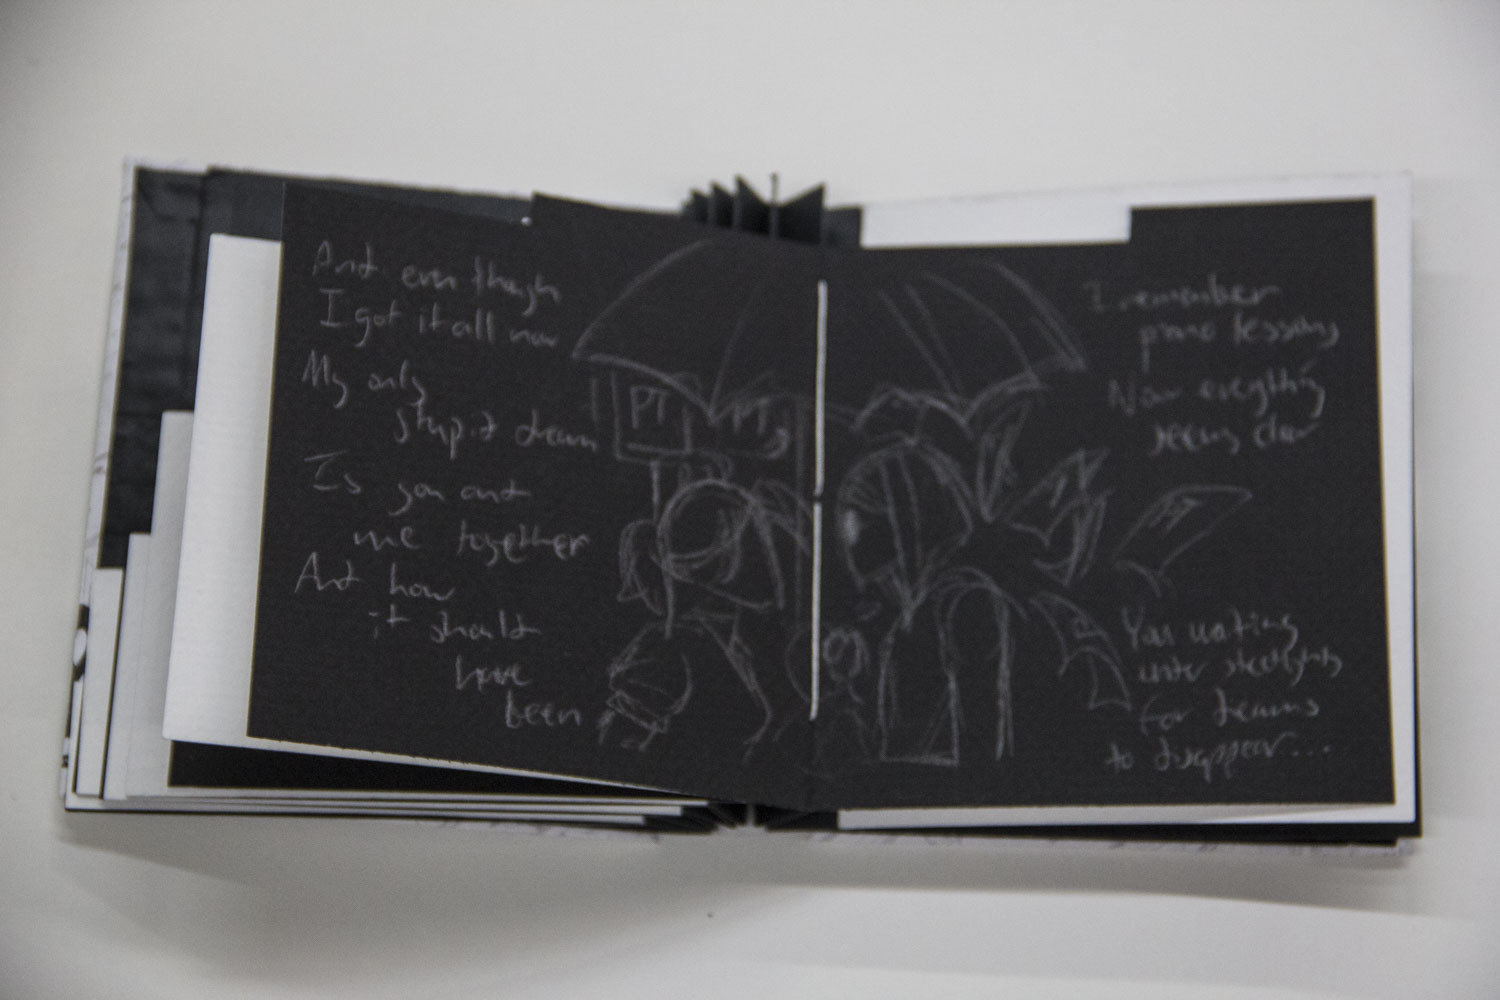 And even though
I got it all now
My only
stupid dream
Is you and
me together
And how
it should
have
been
PT
PT
I remember
piano lessons
Now everything
seems clear
You waiting
under streetlights
for dreams
to disappear...